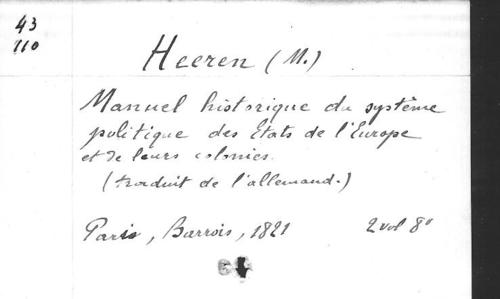 43
110
Heeren (M.)
Manuel historique du système
politique des Etats de l'Europe
et de leurs colonies.
(traduit de l'allemand.)
Paris, Barrois, 1821 2 vol 8°